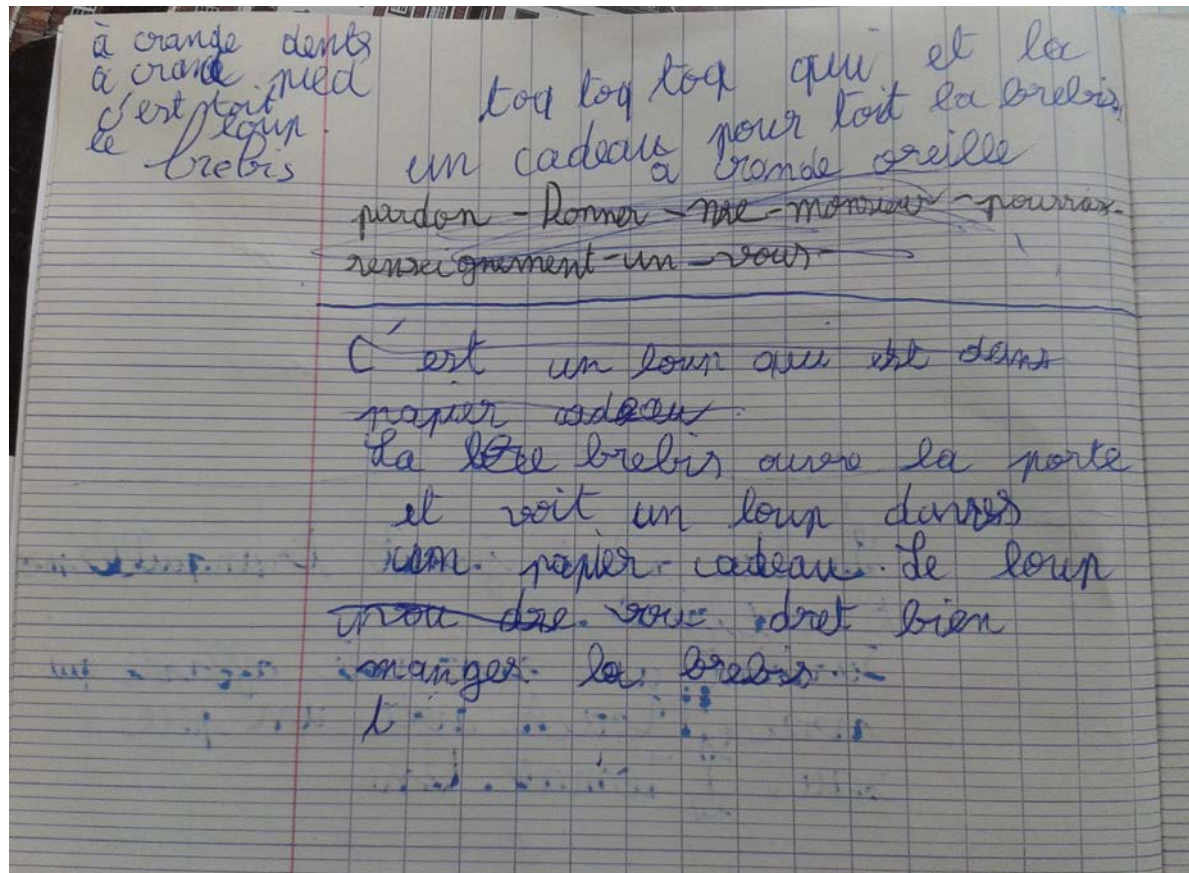 à crande dents
à crande pied
c'est toit
le loup.
brebis
toq toq toq qui et la
un cadeau pour toit la brebis
a crande oreille
pardon - Donner - me - monsieur - pourriax-
renseignement - un - vous -
C'est un loup qui est dans
papier cadeau.
La brebis ouvre la porte
et voit un loup dans
un papier cadeau. Le loup
vou dret bien
manger la brebis
l